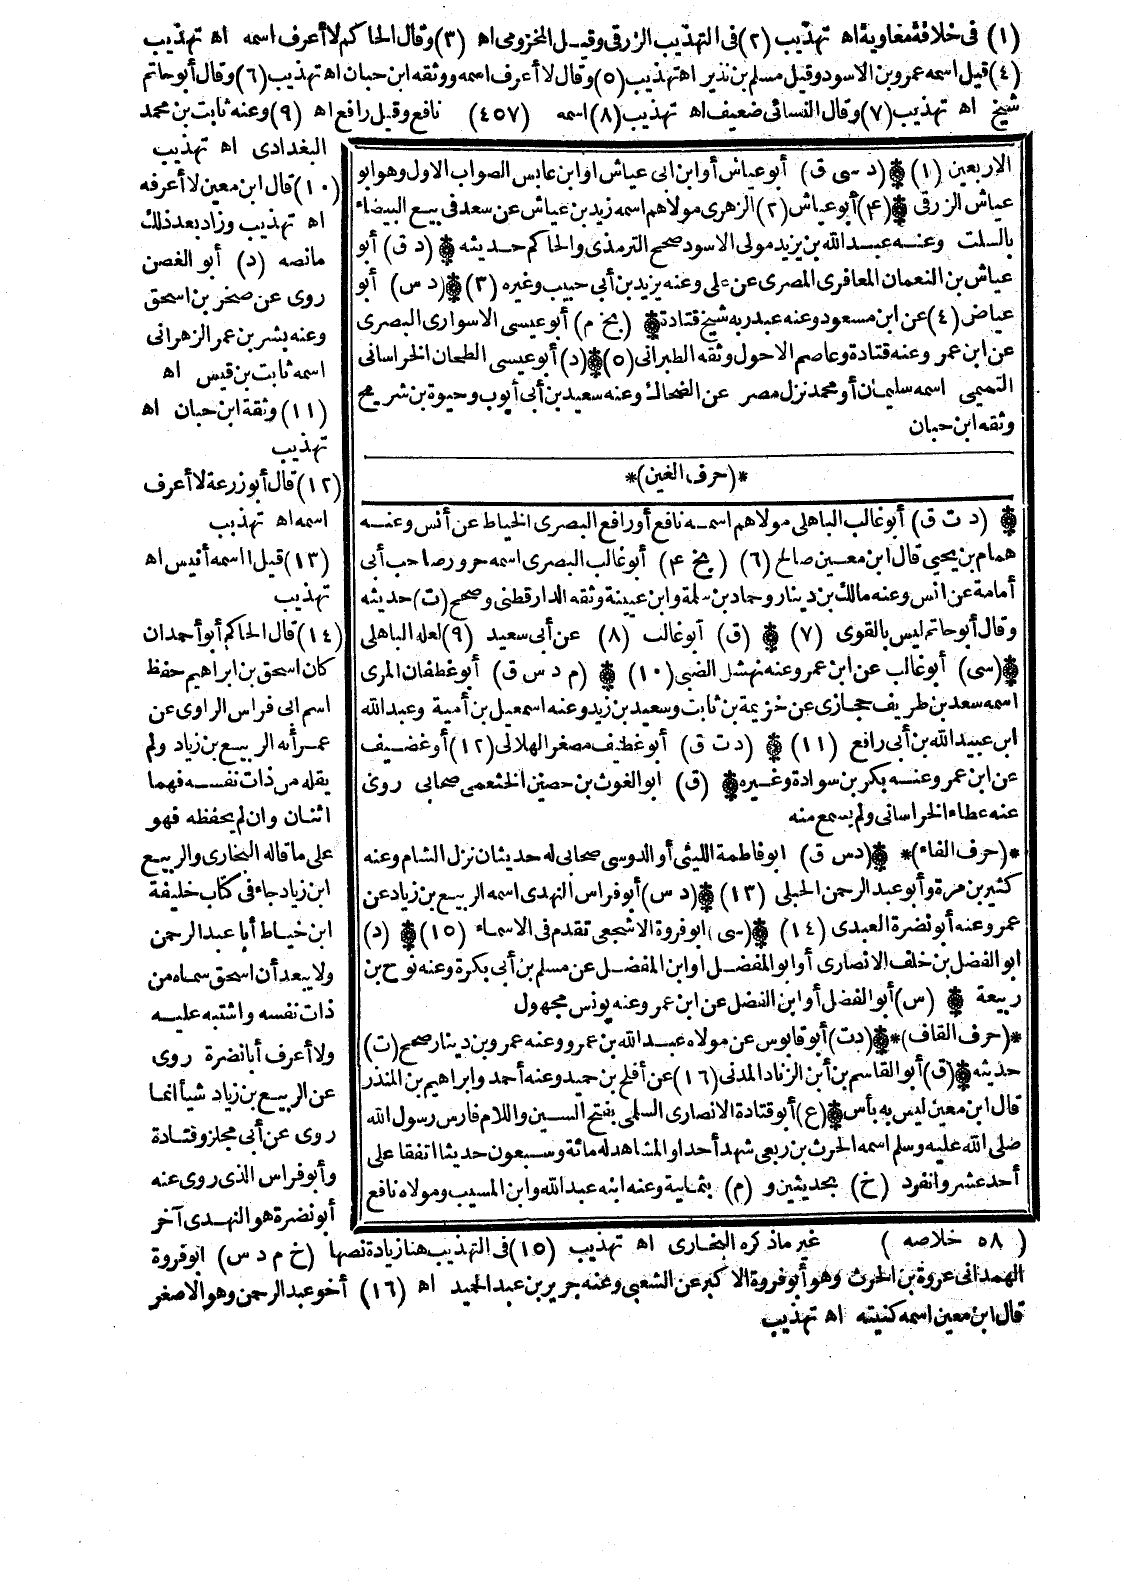 (١) فى خلافة معاوية اه تهذيب (٢) فى التهذيب الزرقى وقيل المخزومى اه (٣) وقال الحاكم لا أعرف اسمه اه تهذيب
(٤) قيل اسمه عمرو بن الاسود وقيل مسلم بن نذير اه تهذيب (٥) وقال لا أعرف اسمه ووثقه ابن حبان اه تهذيب (٦) وقال أبو حاتم
شيخ اه تهذيب (٧) وقال النسائى ضعيف اه تهذيب (٨) اسمه (٤٥٧) نافع وقيل رافع اه (٩) وعنه ثابت بن محمد
البغدادى اه تهذيب
(١٠) قال ابن معين لا أعرفه
اه تهذيب وزاد بعد ذلك
مانصه (د) أبو الغصن
روى عن صخر بن اسحق
وعنه بشر بن عمر الزهرانى
اسمه ثابت بن قيس اه
(١١) وثقة ابن حبان اه
تهذيب
(١٢) قال أبو زرعة لا أعرف
اسمه اه تهذيب
(١٣) قيل اسمه أنيس اه
تهذيب
(١٤) قال الحاكم أبو أحمد ان
كان اسحق بن ابراهيم حفظ
اسم ابى فراس الراوى عن
عمر أنه الربيع بن زياد ولم
يقله من ذات نفسه فهما
اثنان وان لم يحفظه فهو
على ما قاله البخارى والربيع
ابن زياد جاء فى كتاب خليفة
ابن خياط أبا عبد الرحمن
ولا يبعد أن اسحق سماه من
ذات نفسه واشتبه عليه
ولا أعرف أبا نضرة روى
عن الربيع بن زياد شيأ انما
روى عن أبى مجلز وقتادة
وأبو فراس الذى روى عنه
أبو نضرة هو النهدى آخر
الاربعين (١) (د سى ق) أبو عياش أو ابن ابى عياش او ابن عابس الصواب الاول وهو ابو
عياش الزرقى (٤) أبو عياش (٢) الزهرى مولاهم اسمه زيد بن عياش عن سعد فى بيع البيضاء
بالسلت وعنه عبد الله بن يزيد مولى الاسود صحح الترمذى والحاكم حديثه (د ق) أبو
عياش بن النعمان المعافرى المصرى عن على وعنه يزيد بن أبى حبيب وغيره (٣) (د س) أبو
عياض (٤) عن ابن مسعود وعنه عبد ربه شيخ قتادة (بخ م) أبو عيسى الاسوارى البصرى
عن ابن عمر وعنه قتادة وعاصم الاحول وثقه الطبرانى (٥) (د) أبو عيسى الطحان الخراسانى
التميمى اسمه سليمان أو محمد نزل مصر عن الضحاك وعنه سعيد بن أبى أيوب وحيوة بن شريح
وثقه ابن حبان
*(حرف الغين)*
(د ت ق) أبو غالب الباهلى مولاهم اسمه نافع أو رافع البصرى الخياط عن أنس وعنه
همام بن يحيى قال ابن معين صالح (٦) (بخ ٤) أبو غالب البصرى اسمه حزور صاحب أبى
أمامة عن انس وعنه مالك بن دينار وحماد بن سلمة وابن عيينة وثقه الدارقطنى وصحح (ت) حديثه
وقال أبو حاتم ليس بالقوى (٧) (ق) أبو غالب (٨) عن أبى سعيد (٩) لعله الباهلى
(سى) أبو غالب عن ابن عمر وعنه نهشل الضبى (١٠) (م د س ق) أبو غطفان المرى
اسمه سعد بن طريف حجازى عن خزيمة بن ثابت وسعيد بن زيد وعنه اسمعيل بن أمية وعبد الله
ابن عبيد الله بن أبى رافع (١١) (د ت ق) أبو غطيف مصغر الهلالى (١٢) أو غضيف
عن ابن عمر وعنه بكر بن سوادة وغيره (ق) ابو الغوث بن حصين الخثعمى صحابى روى
عنه عطاء الخراسانى ولم يسمع منه
*(حرف الفاء)* (دس ق) ابو فاطمة الليثى أو الدوسى صحابى له حديثان نزل الشام وعنه
كثير بن مرة وأبو عبد الرحمن الحبلى (١٣) (د س) أبو فراس النهدى اسمه الربيع بن زياد عن
عمر وعنه أبو نضرة العبدى (١٤) (سى) ابو فروة الاشجعى تقدم فى الاسماء (١٥) (د)
ابو الفضل بن خلف الانصارى أو ابو المفضل او ابن المفضل عن مسلم بن أبى بكرة وعنه نوح بن
ربيعة (س) أبو الفضل أو ابن الفضل عن ابن عمر وعنه يونس مجهول
*(حرف القاف)* (دت) أبو قابوس عن مولاه عبد الله بن عمرو وعنه عمرو بن دينار صحح (ت)
حديثه (ق) أبو القاسم بن أبن الزناد المدنى (١٦) عن أفلح بن حميد وعنه أحمد وابراهيم بن المنذر
قال ابن معين ليس به بأس (ع) أبو قتادة الانصارى السلمى بفتح السين واللام فارس رسول الله
صلى الله عليه وسلم اسمه الحرث بن ربعى شهد أحدا والمشاهد له مائة وسبعون حديثا اتفقا على
أحد عشر وانفرد (خ) بحديثين و (م) بثمانية وعنه ابنه عبد الله وابن المسيب ومولاه نافع
( ٥٨ خلاصه ) غير ماذكره البخارى اه تهذيب (١٥) فى التهذيب هنا زيادة نصها (خ م د س) ابو فروة
الهمدانى عروة بن الحرث وهو أبو فروة الاكبر عن الشعبى وعنه جرير بن عبد الحميد اه (١٦) أخو عبد الرحمن وهو الاصغر
قال ابن معين اسمه كنيته اه تهذيب